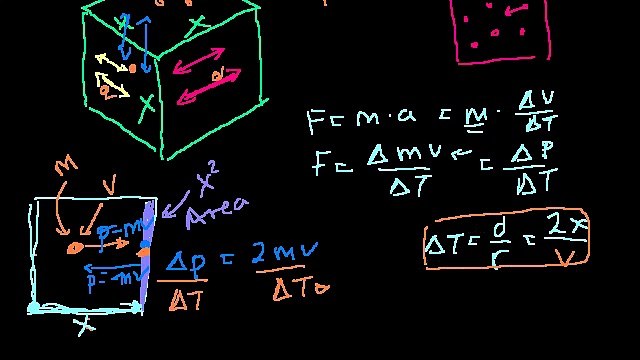 x x
x
F = m · a = m · ΔV/ΔT
F = Δmv/ΔT = ΔP/ΔT
m
v
x² Area
p=mv
p=-mv
Δp/ΔT = 2mv/ΔT
ΔT = d/r = 2x/v
x